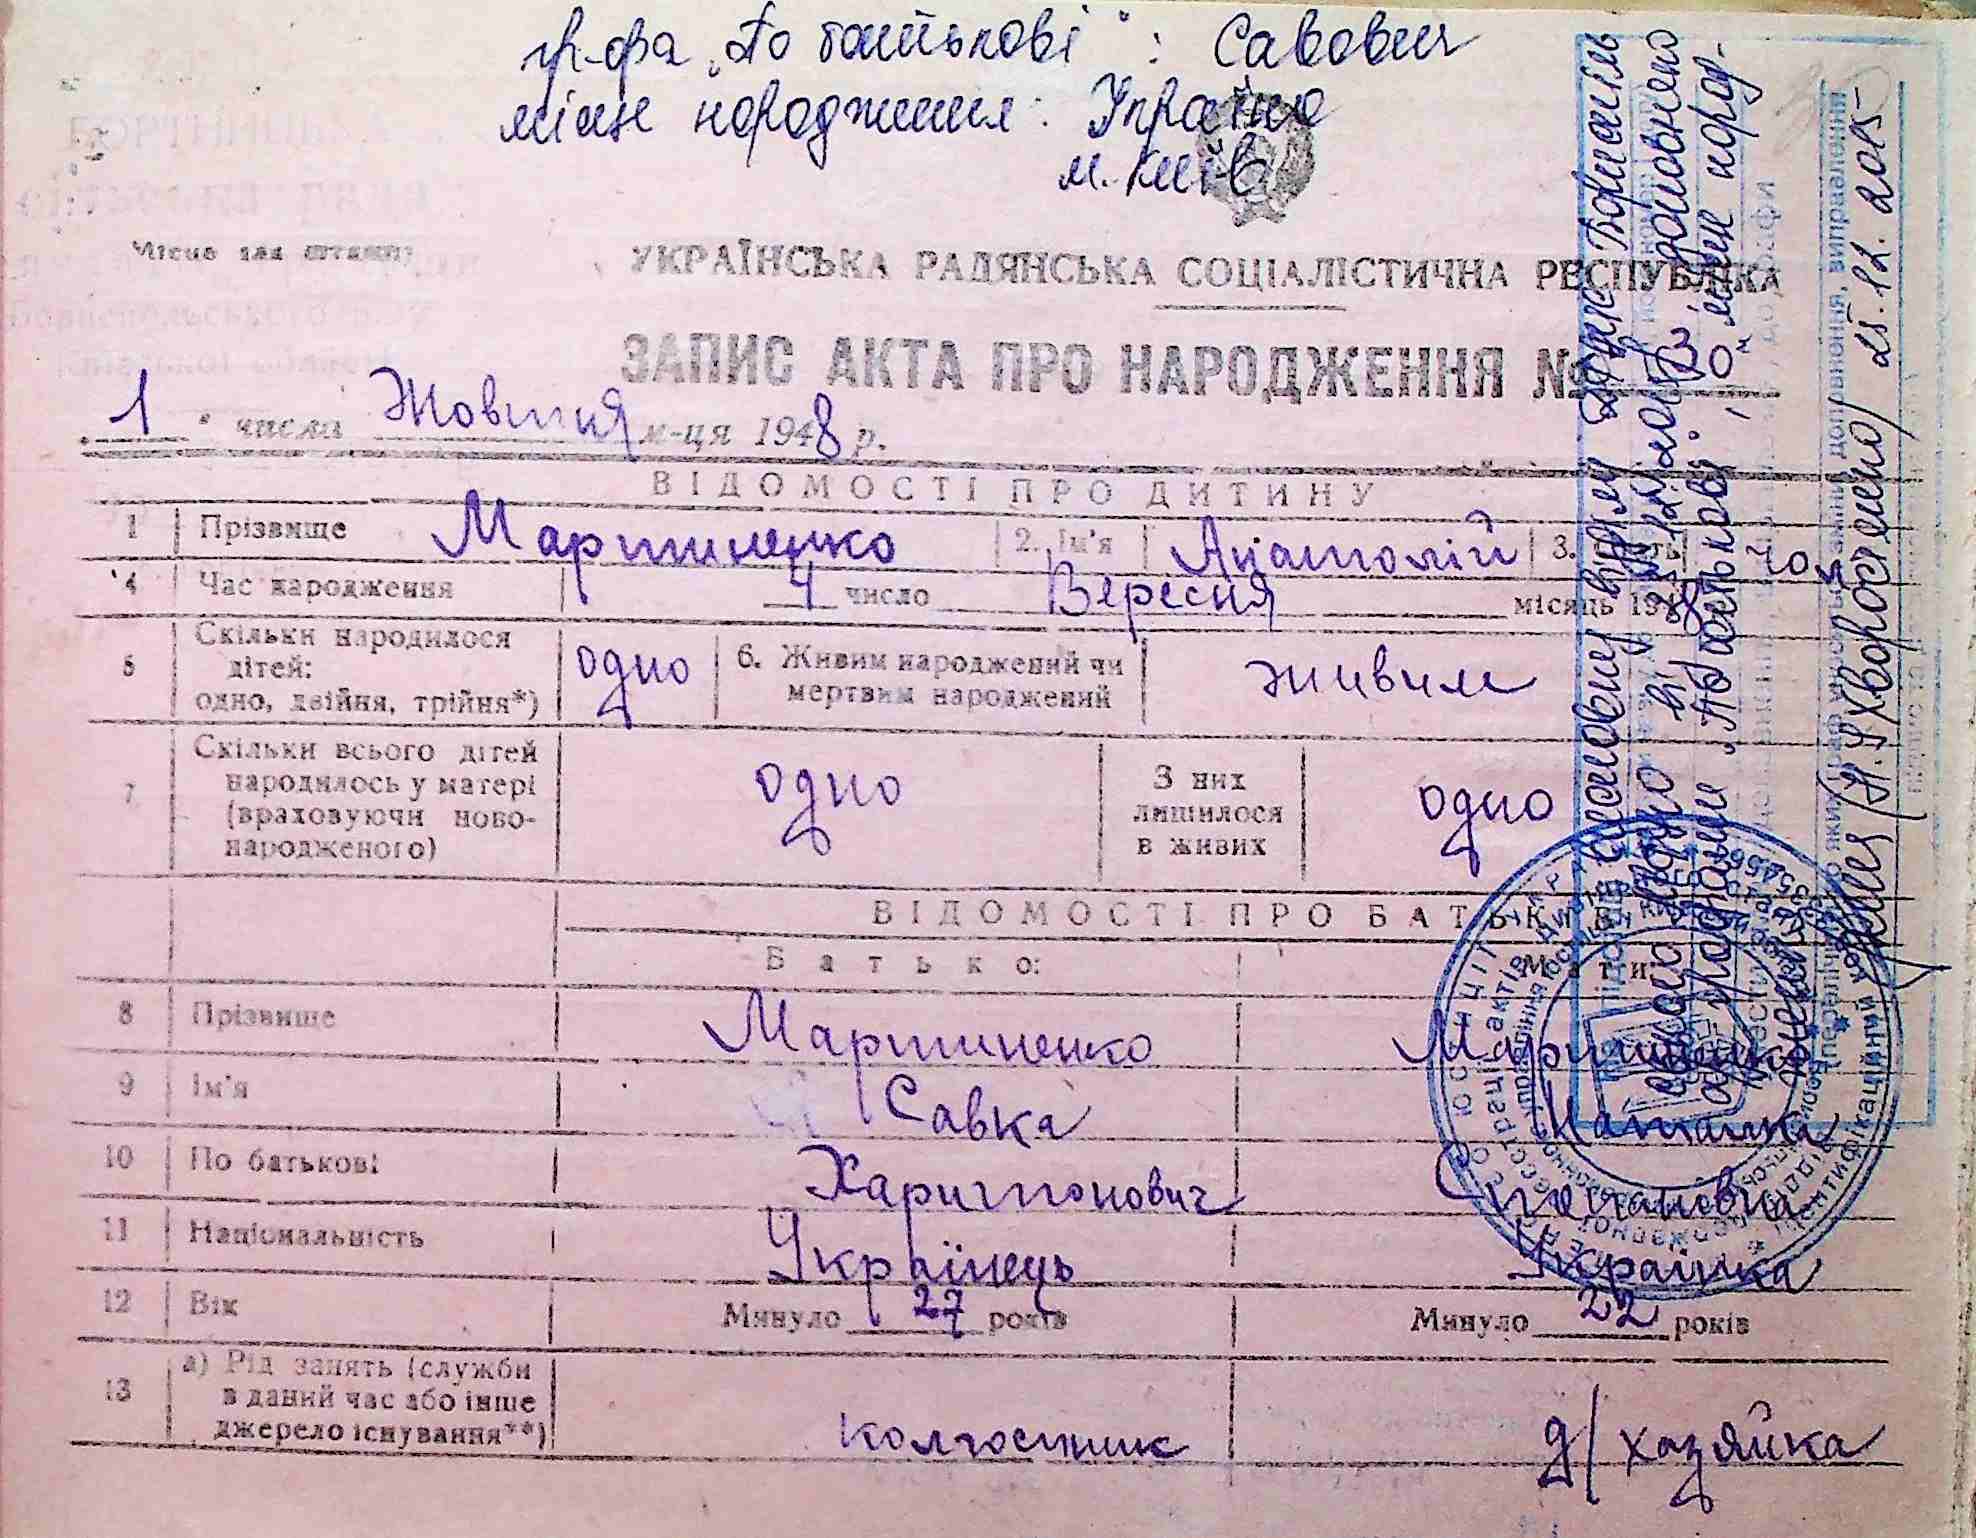 гр-фа „По батькові“: Савович
місце народження: Україна
м. Київ
БОРТНИЦЬКА
СІЛЬСЬКА РАДА
Бориспольського р-ну
Київської області
Місце для штампу
УКРАЇНСЬКА РАДЯНСЬКА СОЦІАЛІСТИЧНА РЕСПУБЛІКА
ЗАПИС АКТА ПРО НАРОДЖЕННЯ №
„1“ числа Жовтня м-ця 1948 р.
ВІДОМОСТІ ПРО ДИТИНУ
1 Прізвище Мартиненко 2. Ім'я Анатолій 3. чол
4 Час народження 4 число Вересня місяць 1948
5 Скільки народилося дітей: одно, двійня, трійня*) одно 6. Живим народжений чи мертвим народжений живим
7 Скільки всього дітей народилось у матері (враховуючи новонародженого) одно З них лишилося в живих одно
ВІДОМОСТІ ПРО БАТЬКІВ
Батько: Мати:
8 Прізвище Мартиненко Мартиненко
9 Ім'я Савка Наталка
10 По батькові Харитонович Степановна
11 Національність Українець Українка
12 Вік Минуло 27 років Минуло 22 років
13 а) Рід занять (служби в даний час або інше джерело існування**) колгоспник д/хазяйка
доповнено
графи „По батькові“, „місце народ-
(Н. Хворостенко) 25.12.2015